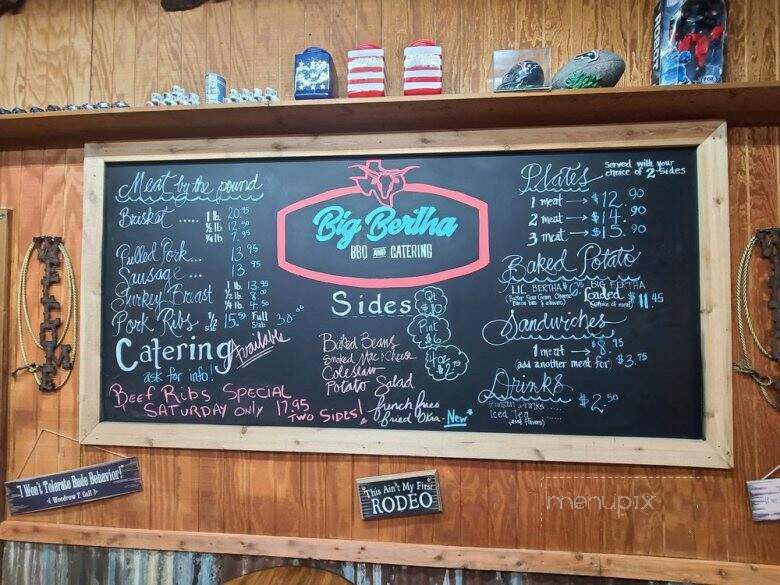 Meat by the pound
Brisket ..... 1 lb. 20.95
½ lb 12.50
¼ lb 7.95
Pulled Pork... 13.95
Sausage ... 13.95
Turkey Breast 1 lb 13.95
½ lb. 8.00
¼ lb. 4.50
Pork Ribs ½ Slab 15.50 Full Slab 30.00
Catering Available
ask for info!
Beef Ribs Special
Saturday Only 17.95
Two Sides!
Big Bertha
BBQ AND CATERING
Sides
Qt $10
Pint $6
4oz
Baked Beans
Smoked Mac & Cheese
Coleslaw
Potato Salad
french fries
fried Okra - New*
Plates
served with your choice of 2 sides
1 meat → $12.90
2 meat → $14.90
3 meat → $15.90
Baked Potato
LIL BERTHA
BIG BERTHA
Loaded $11.45
(choice of meat)
Sandwiches
1 meat → $8.95
(add another meat for) $3.75
Drinks
Fountain Drinks ..... $2.50
Iced Tea .....
"I Won't Tolerate Rude Behavior!"
Woodrow F. Call
"This Ain't My First
RODEO
menupix